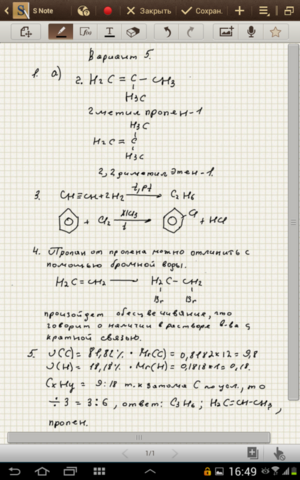 S Note
Закрыть
Сохран.
Вариант 5.
1. а)
2. H₂C = C – CH₃
H₃C
2 метил пропен-1
H₃C
H₂C = C
H₃C
2,2 диметил этен-1.
3. CH≡CH+2H₂ t, pt → C₂H₆
+ Cl₂ t → Cl + HCl
4. Пропан от пропена можно отличить с
помощью бромной воды.
H₂C=CH₂ → H₂C – CH₂
Br Br
произойдет обесцвечивание, что
говорит о наличии в растворе в-ва с
кратной связью.
5. ω(C) = 81,82% · Mr(C) = 0,8182×12 = 9,8
ω(H) = 18,18% · Mr(H) = 0,1818×1 = 0,18.
CxHy = 9:18 т.к атома C по усл., то
÷3 = 3:6, ответ: C₃H₆; H₂C=CH-CH₃,
пропен.
1/1
16:49